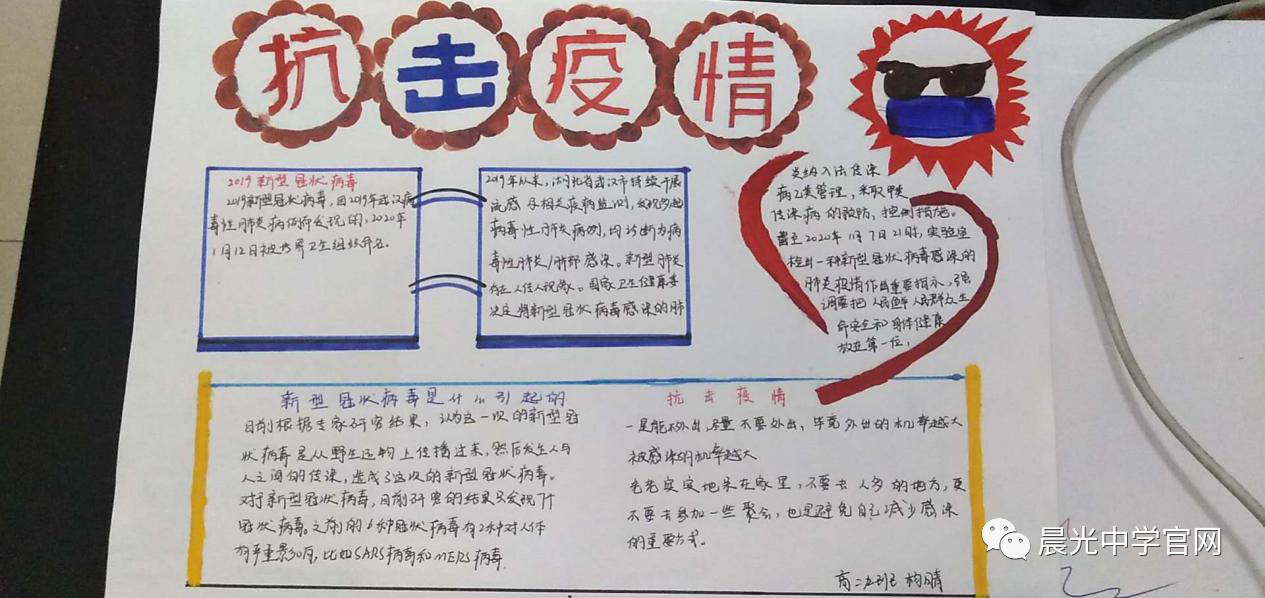 抗击疫情
2019新型冠状病毒
2019新型冠状病毒，因2019年武汉病
毒性肺炎病例而发现的，2020年
1月12日被世界卫生组织命名。
2019年以来，湖北省武汉市持续开展
流感及相关疾病监测，发现多起
病毒性肺炎病例，均诊断为病
毒性肺炎/肺部感染。新型肺炎
存在人传人现象。国家卫生健康委
决定将新型冠状病毒感染的肺
炎纳入法传染
病乙类管理，采取甲类
传染病的预防，控制措施。
截至2020年1月7日21时，实验室
检出一种新型冠状病毒感染的
肺炎疫情作出重要指示，强
调要把人民群众生
命安全和身体健康
放在第一位，
新型冠状病毒是什么引起的
目前根据专家研究结果，认为这一次的新型冠
状病毒是从野生动物上传播过来，然后发生人与
人之间的传染，造成了这次的新型冠状病毒。
对于新型冠状病毒，目前研究的结果只发现7个
冠状病毒。之前的6种冠状病毒有2种对人体
有严重影响，比如SARS病毒和MERS病毒
抗击疫情
一是能不外出，尽量不要外出，毕竟外出的机率越大
被感染的机率越大
老老实实地呆在家里，不要去人多的地方，更
不要去参加一些聚会，也是避免自己减少感染
的重要方式。
高二九班
晨光中学官网